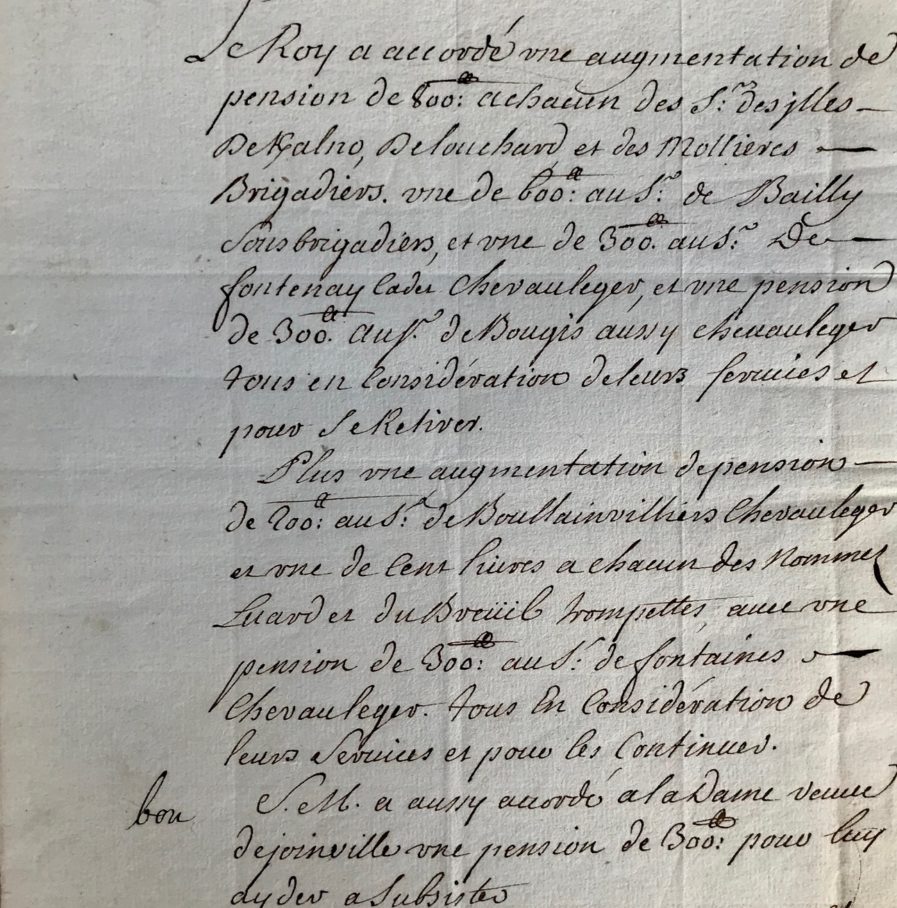 Le Roy a accordé une augmentation de
pension de 800.ᵗᵗ a chacun des S.ʳˢ des jlles
De Kalno, Delouchard et des Mollieres
Brigadiers. une de 600.ᵗᵗ au S.ʳ de Bailly
Sousbrigadiers, et une de 300.ᵗᵗ au S.ʳ De
fontenay Cadet Chevauleger, et une pension
de 300.ᵗᵗ au S.ʳ de Bougis aussy chevauleger
tous en Considération de leurs services et
pour Se Retirer.
Plus une augmentation de pension
de 200.ᵗᵗ au S.ʳ de Boullainvilliers Chevauleger
et une de Cent livres a chacun des Nommez
Luard et du Breüil trompettes, avec une
pension de 300.ᵗᵗ au S.ʳ de fontaines
Chevauleger. tous En Considération de
leurs Services et pour les Continuer.
bon S. M. a aussy accordé a la Dame veuve
de joinville une pension de 300.ᵗᵗ pour luy
ayder a Subsister